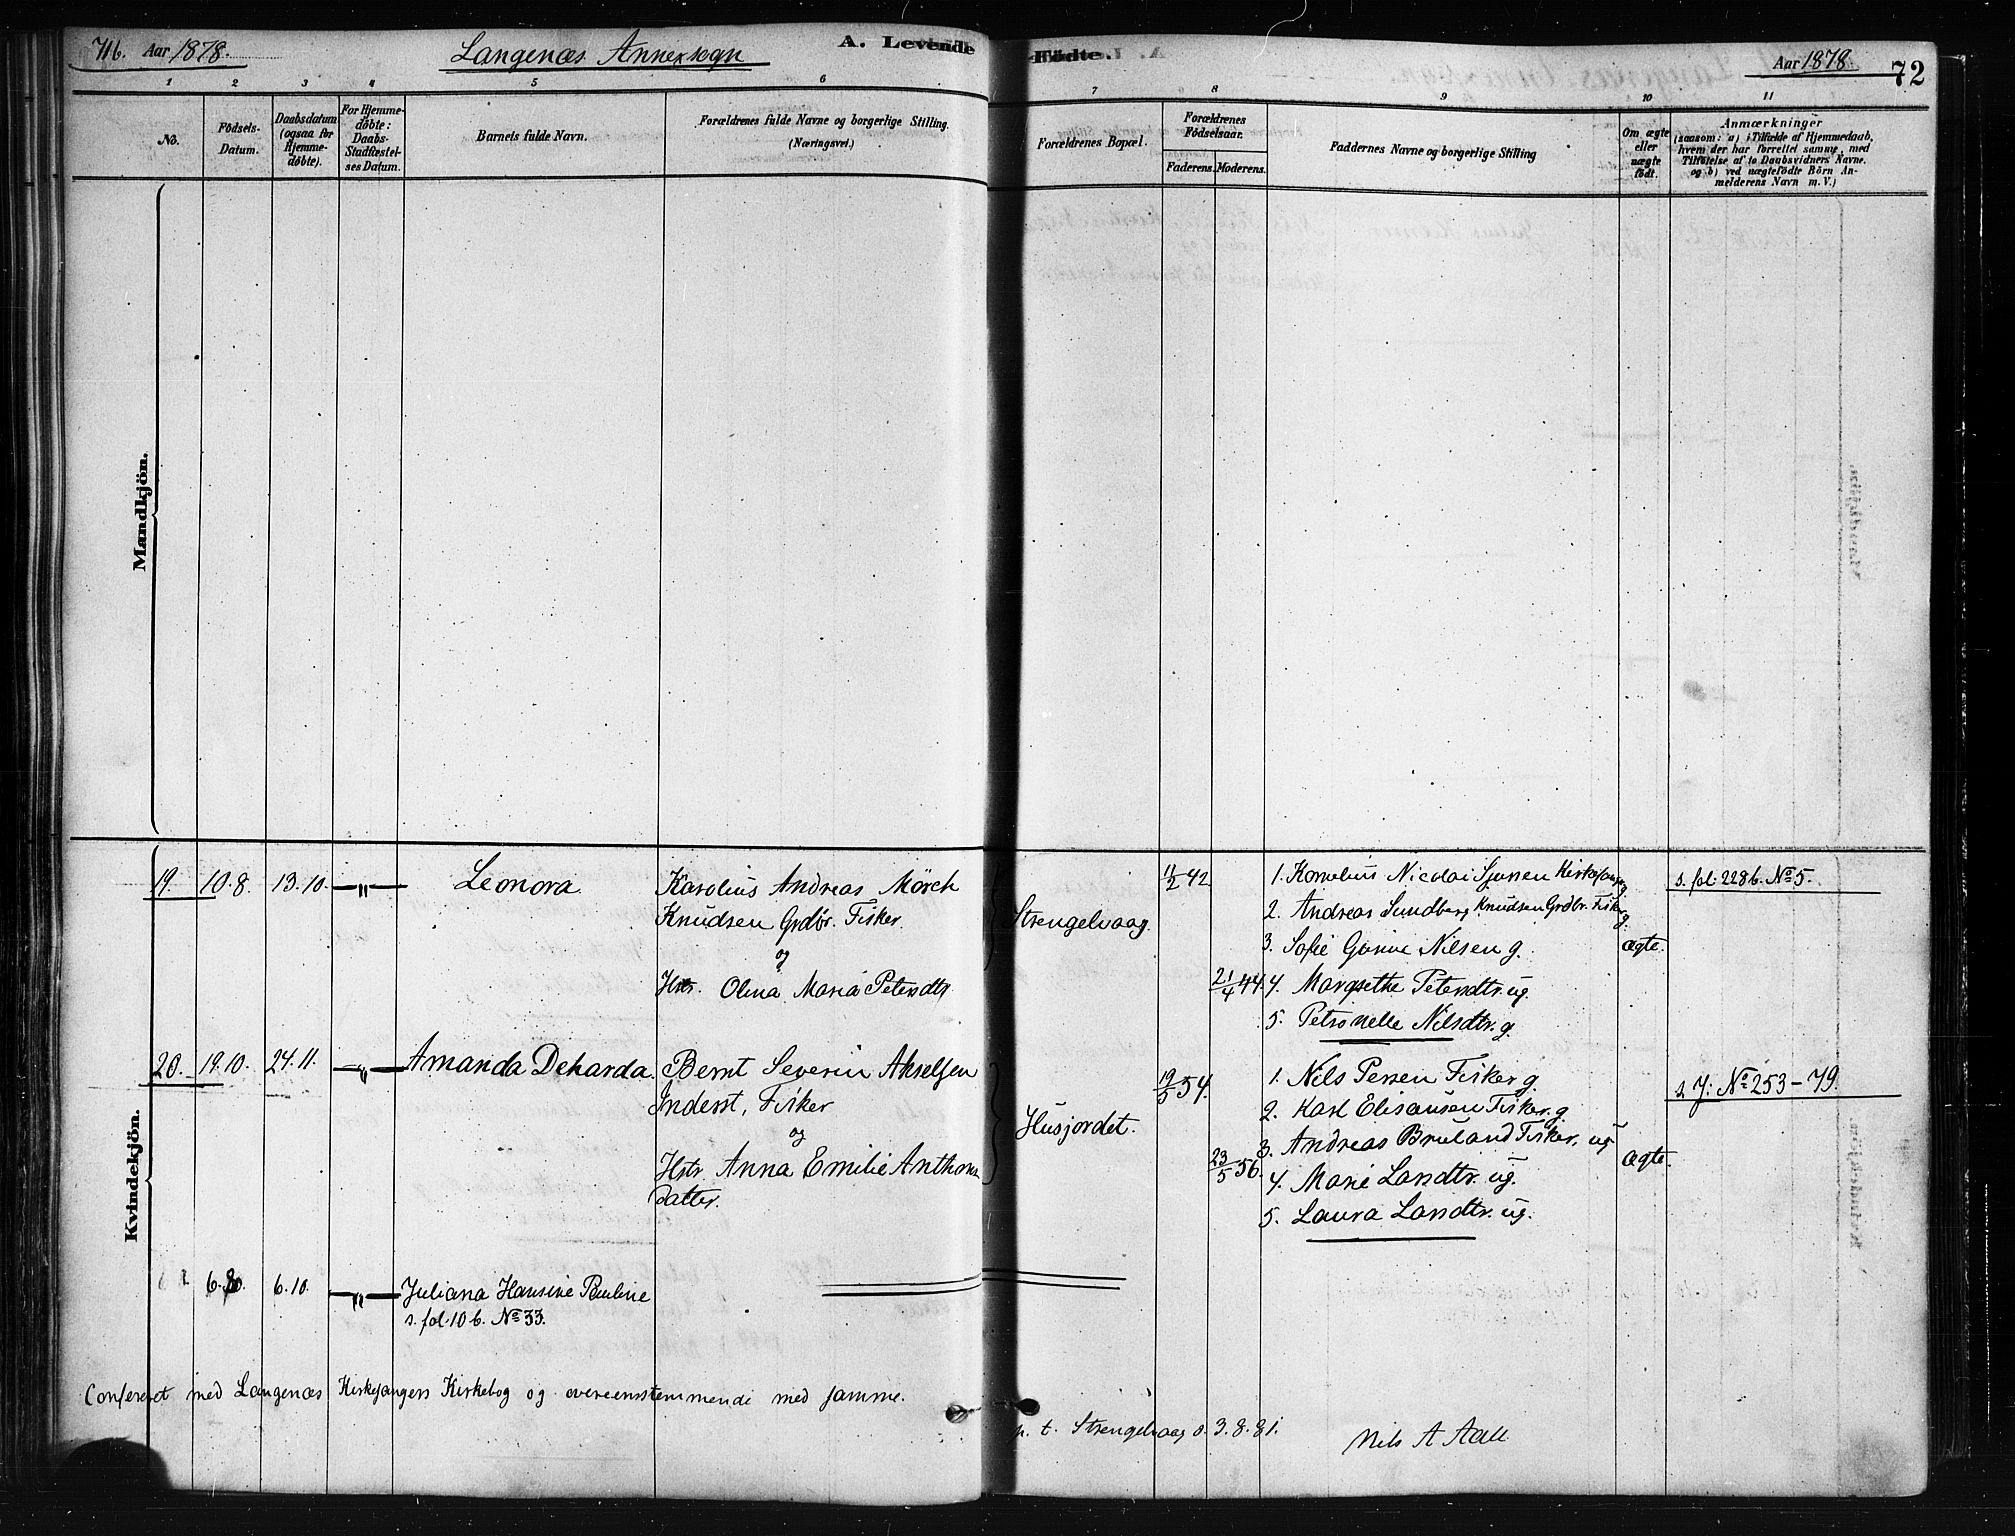 71b. Aar 1878. Langenæs Annexsogn A. Levende Födte. Aar 1878. 72
1 2 3 4 5 6 7 8 9 10 11
No.
Födsels-Datum.
Daabsdatum (ogsaa for Hjemme-döbte).
For Hjemme-döbte: Daabs-Stadfæstel-ses Datum.
Barnets fulde Navn.
Forældrenes fulde Navne og borgerlige Stilling.
(Næringsvei.)
Forældrenes Bopæl.
Forældrenes Födselsaar.
Faderens. Moderens.
Faddernes Navne og borgerlige Stilling
Om ægte eller uægte födt.
Anmærkninger
(saasom: a) i Tilfælde af Hjemmedaab,
hvem der har forrettet samme, med
Tilföielse af to Daabsvidners Navne.
og b) ved uægtefödte Börn An-
melderens Navn m. V.)
Mandkjön.
Kvindekjön.
19. 10.8. 13.10. —"— Leonora
Karolius Andreas Mörch
Knudsen Grdbr. Fisker.
og
Hstr. Olina Maria Petersdtr
Strengelvaag.
11/2 42
21/4 44.
1. Kornelius Nicolai Sjursen Kirkesanger g
2. Andreas Sundberg Knudsen Grdbr. Fisker g.
3. Sofie Gurine Nilsen g.
4. Margrethe Petersdtr. ug.
5. Petronelle Nilsdtr. g.
ægte.
s. fol: 228 b. No 5.
20. 19.10. 24.11. —"— Amanda Deharda.
Bernt Severin Akselsen
Inderst, Fisker
og
Hstr. Anna Emilie Anthons
Datter.
Husjordet.
19/5 54.
23/5 56.
1. Nils Persen Fisker g.
2. Karl Elisausen Fisker. g.
3. Andreas Bruland Fisker. ug
4. Marie Larsdtr. ug.
5. Laura Larsdtr. ug.
ægte.
s J: No 253-79.
6.8. 6.10. —"— Juliana Hansine Pauline
s. fol. 10 b. No 33.
Confereret med Langenæs Kirkesangers Kirkebog og overeensstemmende med samme.
p. t. Strengelvaag d. 3.8.81. Nils A Aall